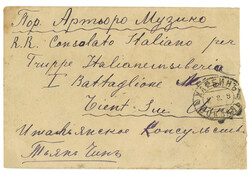 Пор. Артьоро Музино
R.R. Consolato Italiano per
Truppe Italiane in Siberia
I Battaglione M
Tient Sin
Итальянское Консульс
Тьянь Чинъ
ХАРБИНЪ